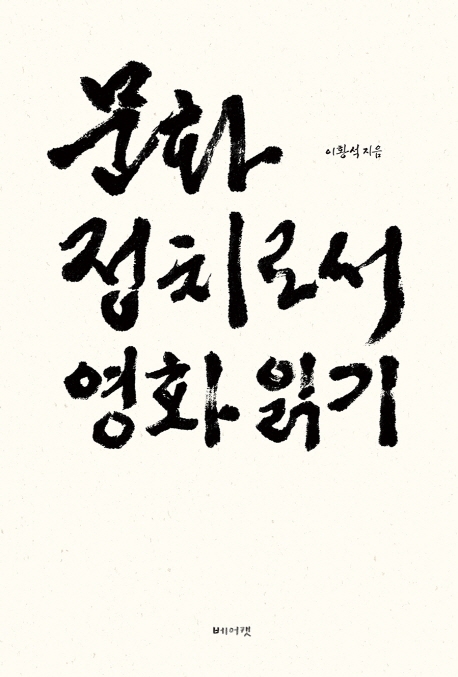 문화
이황석 지음
정치로서
영화 읽기
베어캣